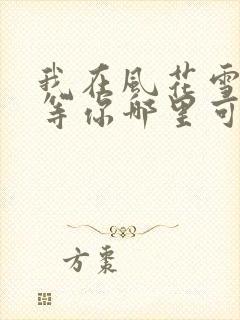 我在風花雪
等你那里可
方棗